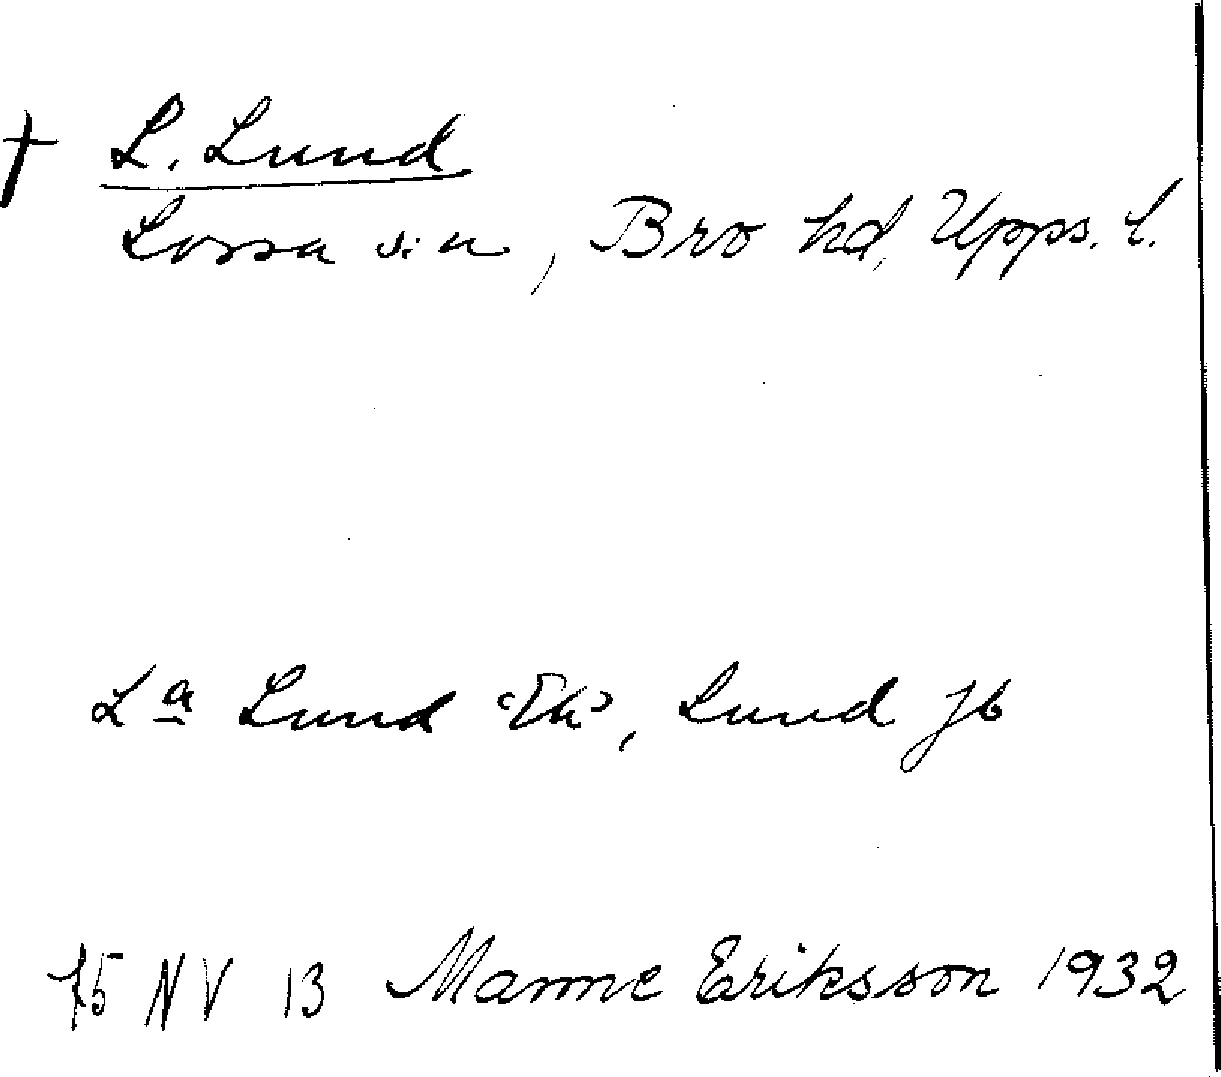 † L. Lund
Lossa sn, Bro hd, Upps. l.
La Lund Ek, Lund Jb
75 NV 13 Manne Eriksson 1932